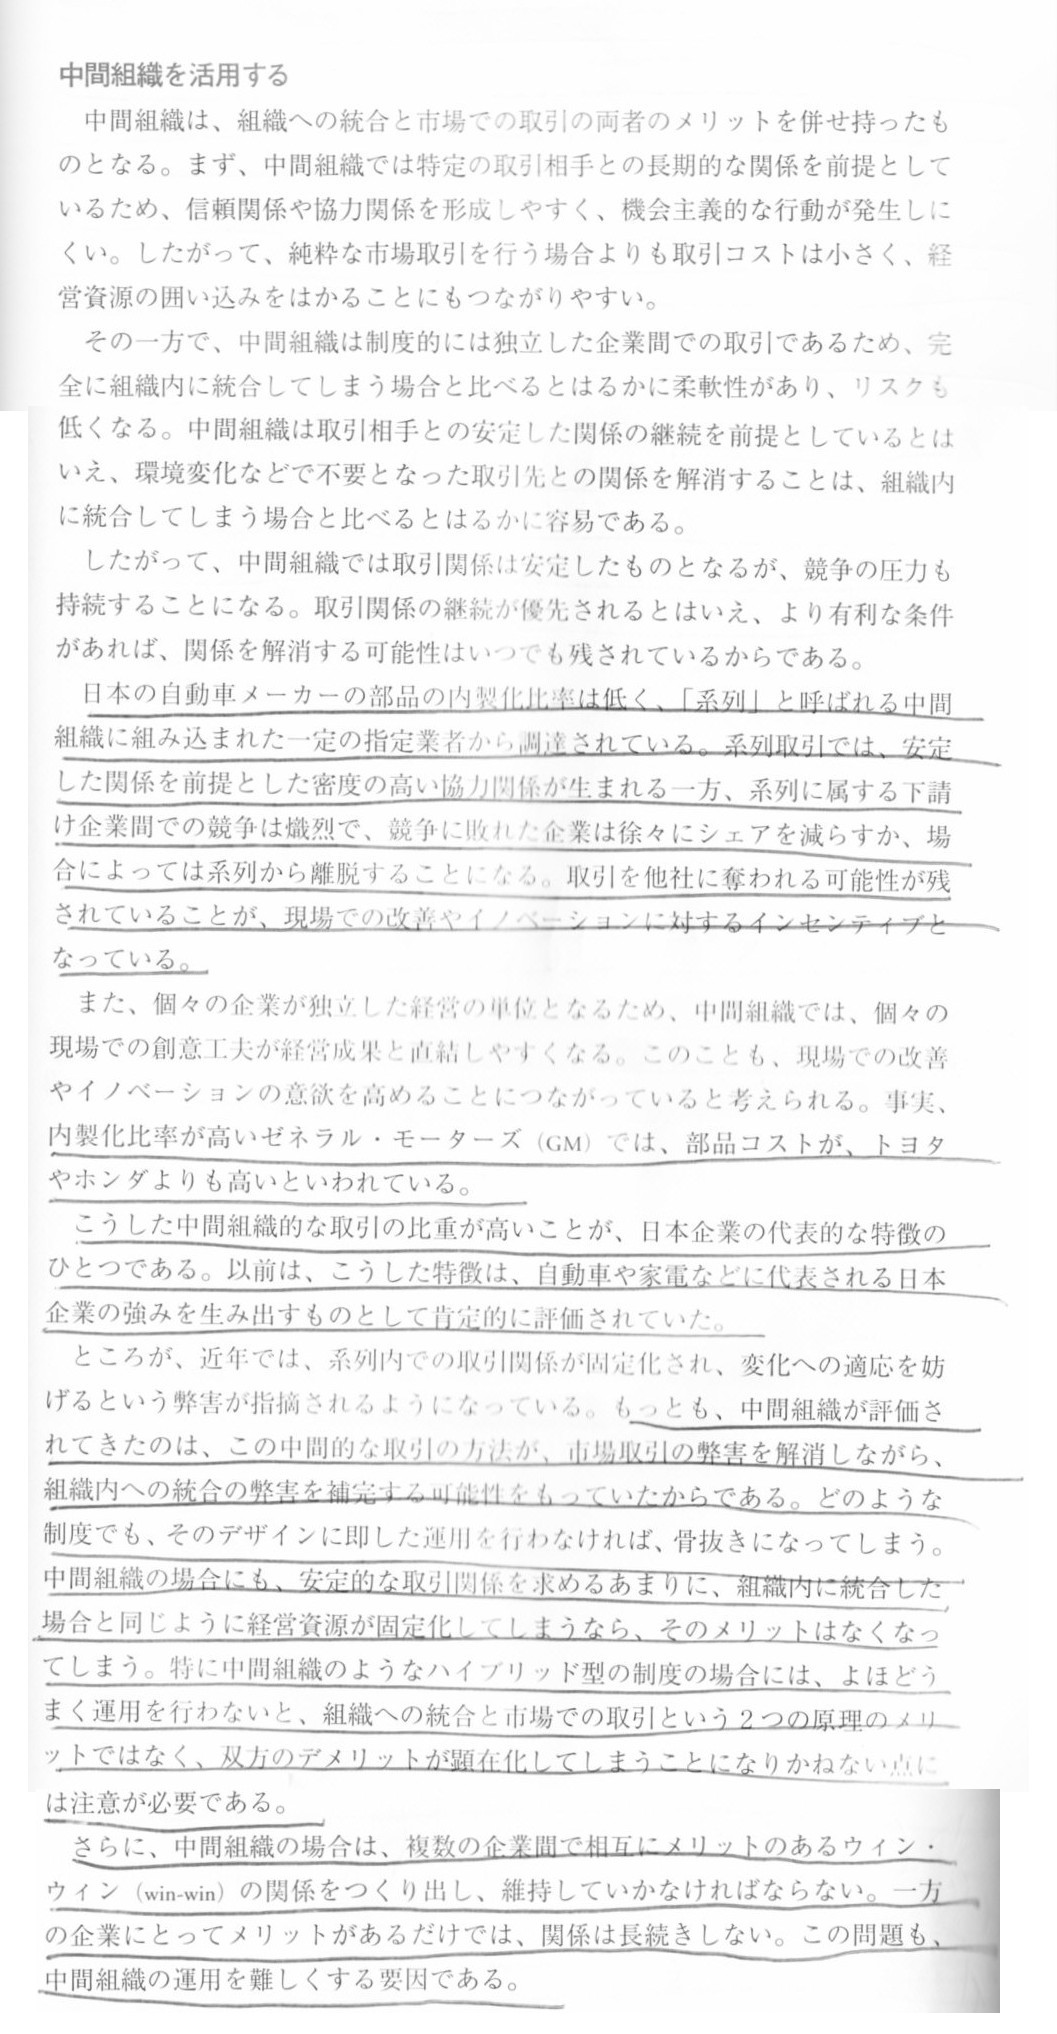 中間組織を活用する
中間組織は、組織への統合と市場での取引の両者のメリットを併せ持ったも
のとなる。まず、中間組織では特定の取引相手との長期的な関係を前提として
いるため、信頼関係や協力関係を形成しやすく、機会主義的な行動が発生しに
くい。したがって、純粋な市場取引を行う場合よりも取引コストは小さく、経
営資源の囲い込みをはかることにもつながりやすい。
その一方で、中間組織は制度的には独立した企業間での取引であるため、完
全に組織内に統合してしまう場合と比べるとはるかに柔軟性があり、リスクも
低くなる。中間組織は取引相手との安定した関係の継続を前提としているとは
いえ、環境変化などで不要となった取引先との関係を解消することは、組織内
に統合してしまう場合と比べるとはるかに容易である。
したがって、中間組織では取引関係は安定したものとなるが、競争の圧力も
持続することになる。取引関係の継続が優先されるとはいえ、より有利な条件
があれば、関係を解消する可能性はいつでも残されているからである。
日本の自動車メーカーの部品の内製化比率は低く、「系列」と呼ばれる中間
組織に組み込まれた一定の指定業者から調達されている。系列取引では、安定
した関係を前提とした密度の高い協力関係が生まれる一方、系列に属する下請
け企業間での競争は熾烈で、競争に敗れた企業は徐々にシェアを減らすか、場
合によっては系列から離脱することになる。取引を他社に奪われる可能性が残
されていることが、現場での改善やイノベーションに対するインセンティブと
なっている。
また、個々の企業が独立した経営の単位となるため、中間組織では、個々の
現場での創意工夫が経営成果と直結しやすくなる。このことも、現場での改善
やイノベーションの意欲を高めることにつながっていると考えられる。事実、
内製化比率が高いゼネラル・モーターズ（GM）では、部品コストが、トヨタ
やホンダよりも高いといわれている。
こうした中間組織的な取引の比重が高いことが、日本企業の代表的な特徴の
ひとつである。以前は、こうした特徴は、自動車や家電などに代表される日本
企業の強みを生み出すものとして肯定的に評価されていた。
ところが、近年では、系列内での取引関係が固定化され、変化への適応を妨
げるという弊害が指摘されるようになっている。もっとも、中間組織が評価さ
れてきたのは、この中間的な取引の方法が、市場取引の弊害を解消しながら、
組織内への統合の弊害を補完する可能性をもっていたからである。どのような
制度でも、そのデザインに即した運用を行わなければ、骨抜きになってしまう。
中間組織の場合にも、安定的な取引関係を求めるあまりに、組織内に統合した
場合と同じように経営資源が固定化してしまうなら、そのメリットはなくなっ
てしまう。特に中間組織のようなハイブリッド型の制度の場合には、よほどう
まく運用を行わないと、組織への統合と市場での取引という２つの原理のメリ
ットではなく、双方のデメリットが顕在化してしまうことになりかねない点に
は注意が必要である。
さらに、中間組織の場合は、複数の企業間で相互にメリットのあるウィン・
ウィン（win-win）の関係をつくり出し、維持していかなければならない。一方
の企業にとってメリットがあるだけでは、関係は長続きしない。この問題も、
中間組織の運用を難しくする要因である。